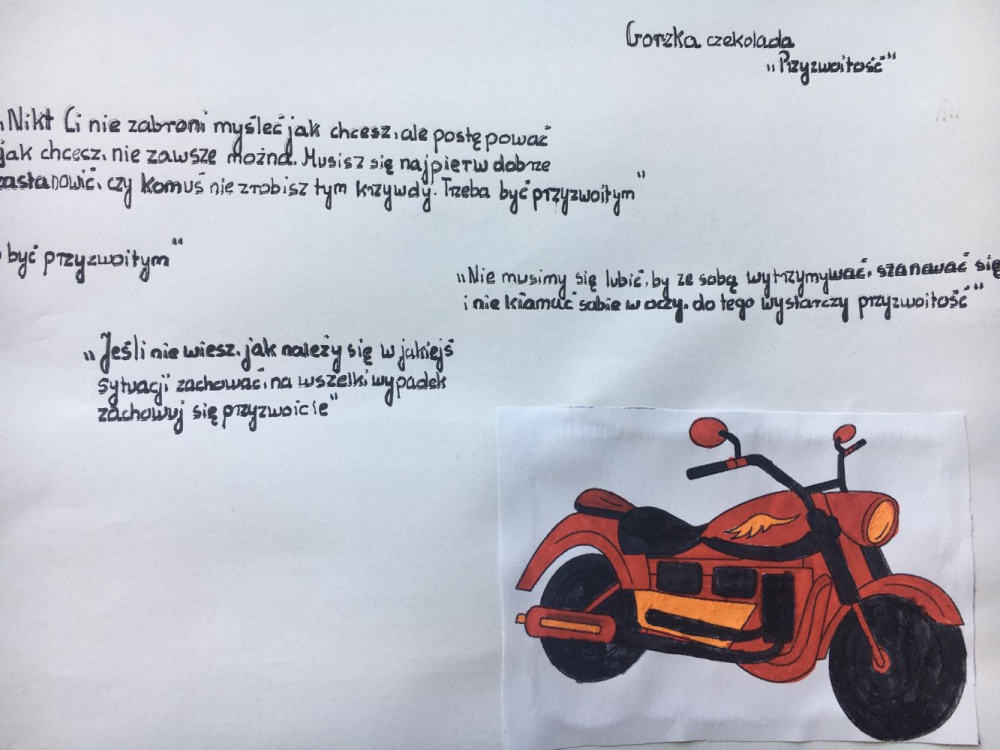 Gorzka czekolada
„Przyzwoitość"
„Nikt Ci nie zabroni myśleć jak chcesz, ale postępować
jak chcesz, nie zawsze można. Musisz się najpierw dobrze
zastanowić, czy komuś nie zrobisz tym krzywdy. Trzeba być przyzwoitym"
być przyzwoitym"
„Nie musimy się lubić, by ze sobą wytrzymywać, szanować się
i nie kłamać sobie w oczy, do tego wystarczy przyzwoitość"
„Jeśli nie wiesz, jak należy się w jakiejś
sytuacji zachować, na wszelki wypadek
zachowuj się przyzwoicie"